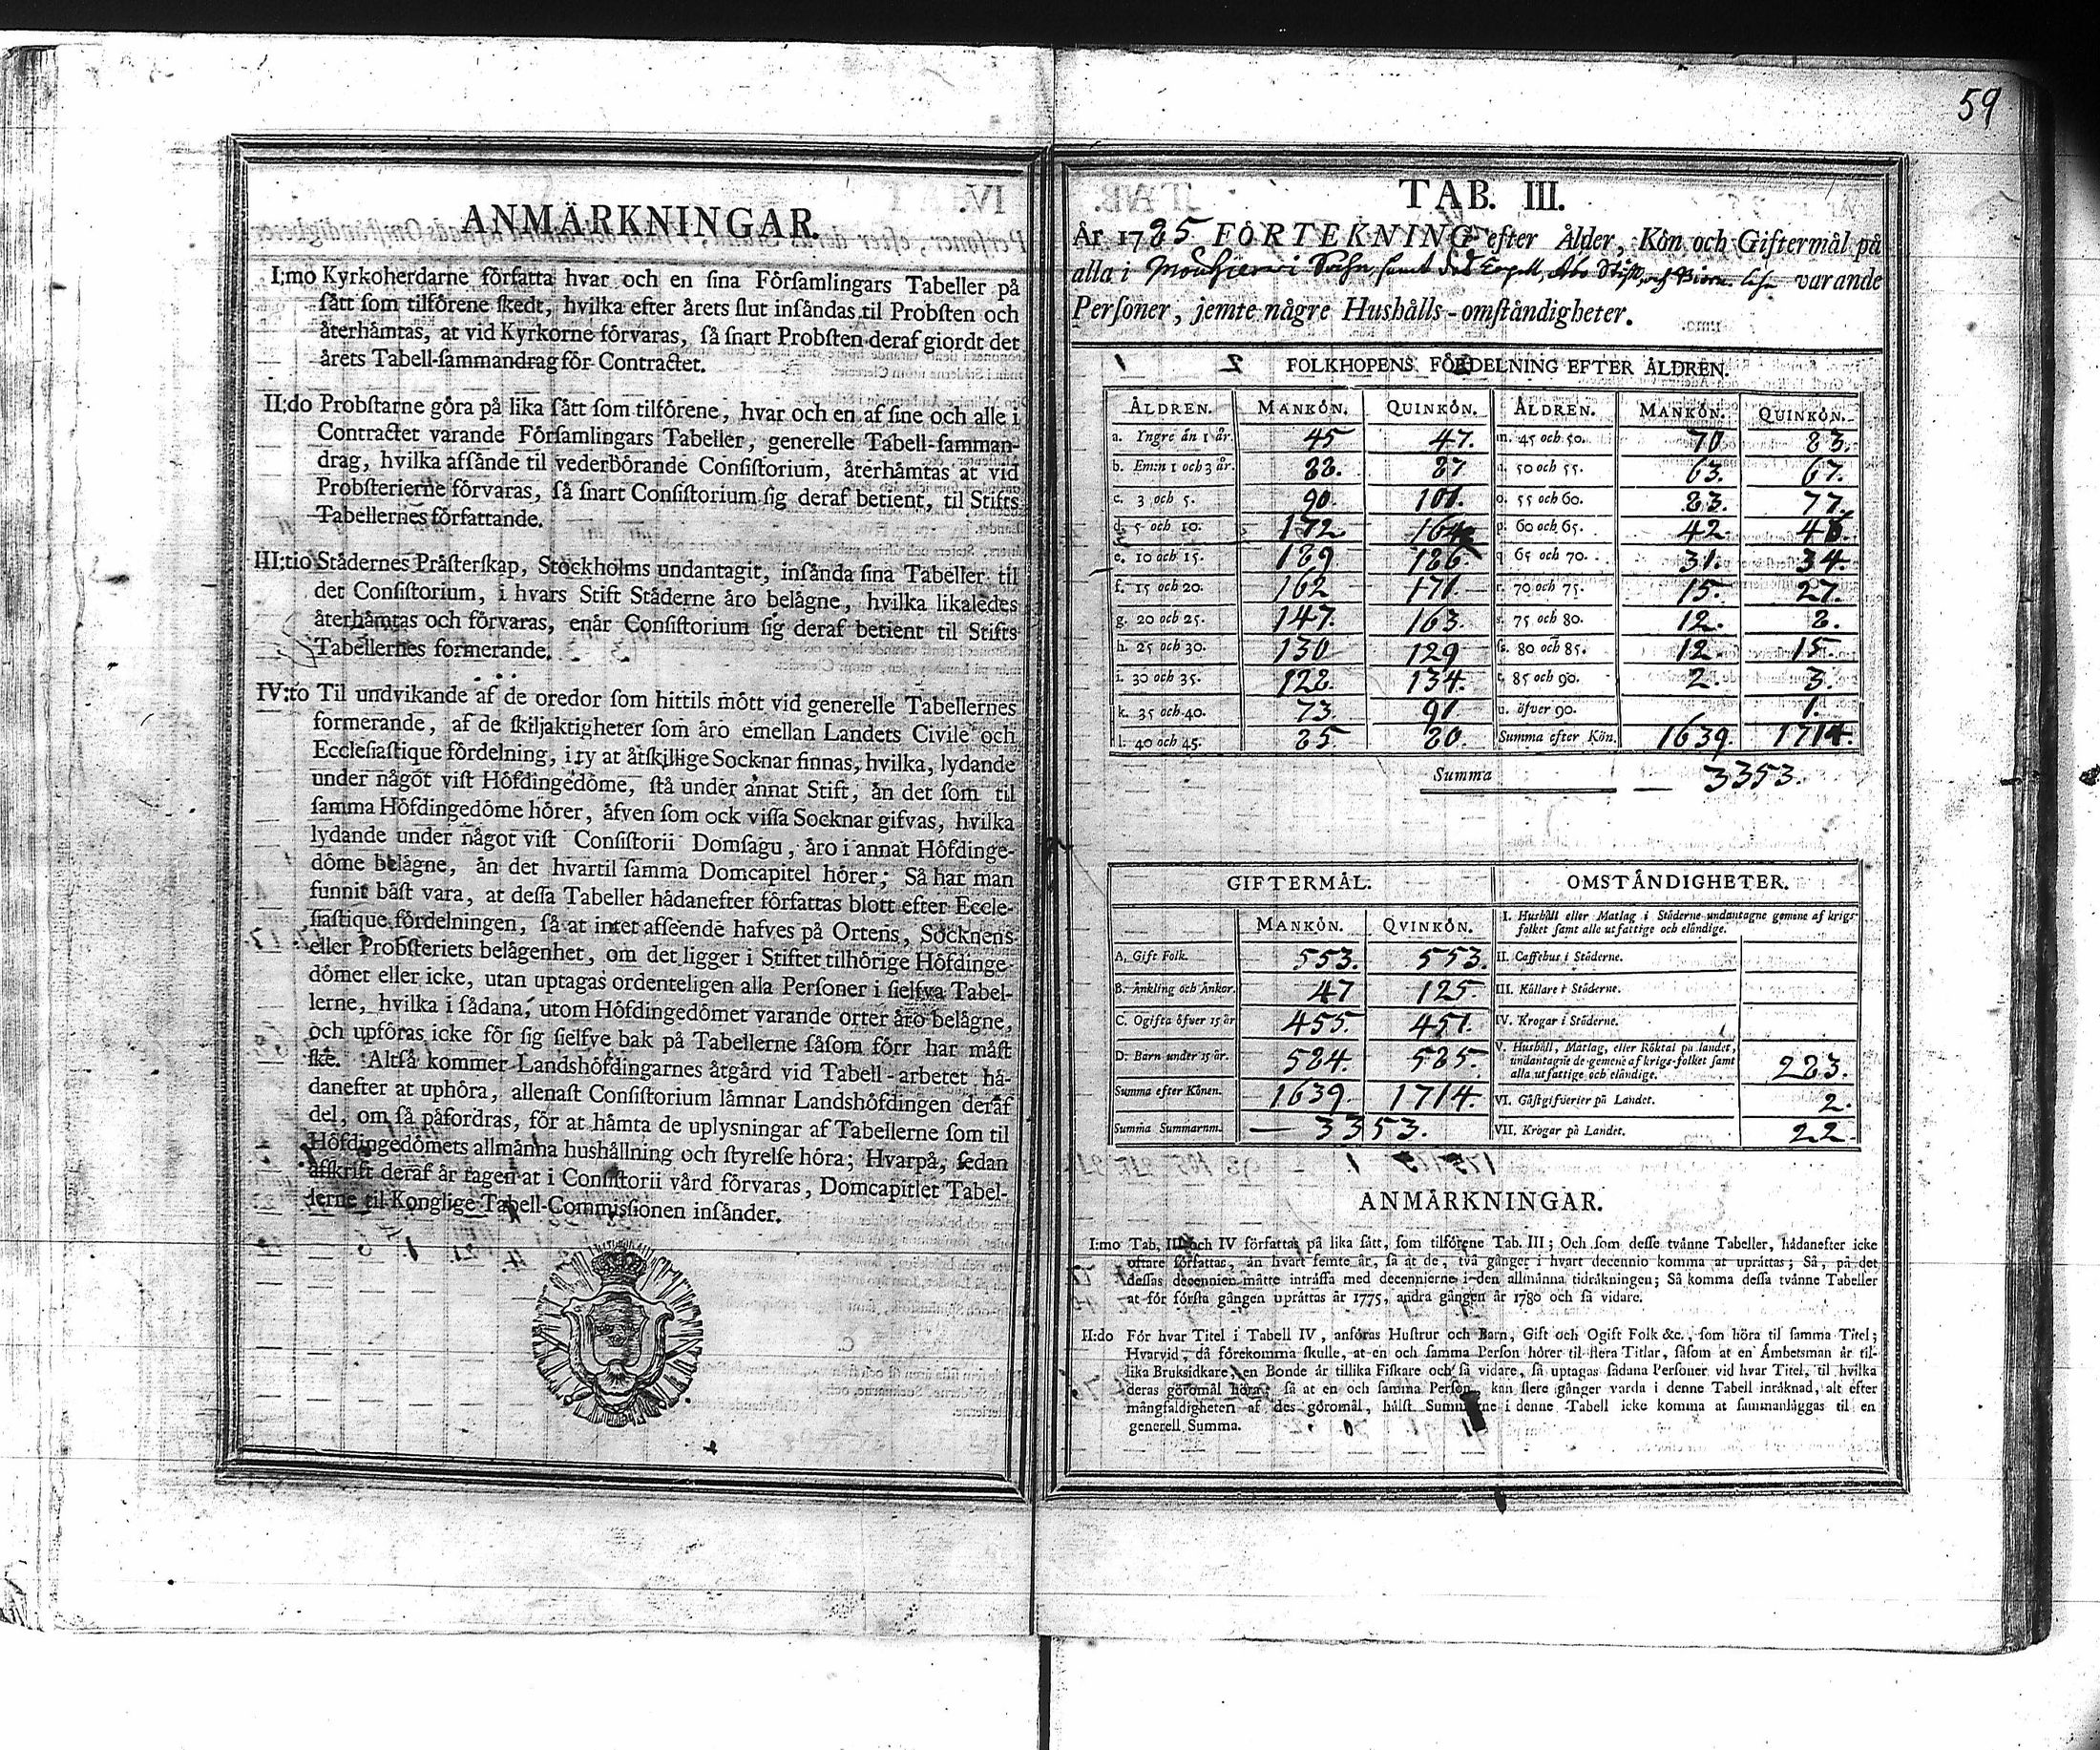 59
ANMÄRKNINGAR.
I:mo Kyrkoherdarne författa hvar och en ſina Förſamlingars Tabeller på
ſätt ſom tilförene ſkedt, hvilka efter årets ſlut inſändas til Probſten och
återhämtas, at vid Kyrkorne förvaras, ſå ſnart Probſten deraf giordt det
årets Tabell-ſammandrag för Contractet.
II:do Probſtarne göra på lika ſätt ſom tilförene, hvar och en af ſine och alle i
Contractet varande Förſamlingars Tabeller, generelle Tabell-ſamman-
drag, hvilka afſände til vederbörande Conſiſtorium, återhämtas at vid
Probſterierne förvaras, ſå ſnart Conſiſtorium ſig deraf betient, til Stifts
Tabellernes författande.
III:tio Städernes Präſterſkap, Stockholms undantagit, inſända ſina Tabeller til
det Conſiſtorium, i hvars Stift Städerne äro belägne, hvilka likaledes
återhämtas och förvaras, enär Conſiſtorium ſig deraf betient til Stifts
Tabellernes formerande.
IV:to Til undvikande af de oredor ſom hittils mött vid generelle Tabellernes
formerande, af de ſkiljaktigheter ſom äro emellan Landets Civile och
Eccleſiaſtique fördelning, i ty at åtſkillige Socknar finnas, hvilka, lydande
under något viſt Höfdingedöme, ſtå under annat Stift, än det ſom til
ſamma Höfdingedöme hörer, äfven ſom ock viſſa Socknar gifvas, hvilka
lydande under något viſt Conſiſtorii Domſagu, äro i annat Höfdinge-
döme belägne, än det hvartil ſamma Domcapitel hörer; Så har man
funnit bäſt vara, at deſſa Tabeller hädanefter författas blott efter Eccle-
ſiaſtique fördelningen, ſå at intet afſeende hafves på Ortens, Socknens
eller Probſteriets belägenhet, om det ligger i Stiftet tilhörige Höfdinge-
dömet eller icke, utan uptagas ordenteligen alla Perſoner i ſielfva Tabel-
lerne, hvilka i ſådana, utom Höfdingedömet varande orter äro belägne,
och upföras icke för ſig ſielfve bak på Tabellerne ſåſom förr har måſt
ſke. Altſå kommer Landshöfdingarnes åtgärd vid Tabell-arbetet hä-
danefter at uphöra, allenaſt Conſiſtorium lämnar Landshöfdingen deraf
del, om ſå påfordras, för at hämta de uplysningar af Tabellerne ſom til
Höfdingedömets allmänna hushållning och ſtyrelſe höra; Hvarpå, ſedan
afſkrift deraf är tagen at i Conſiſtorii vård förvaras, Domcapitlet Tabel-
lerne til Konglige Tabell-Commisſionen inſänder.
TAB. III.
År 1785 FÖRTEKNING efter Ålder, Kön och Giftermål på
alla i Mouhijerwi Sochn, ſamt Capell, Åbo Stift, och Biörn. Lehn varande
Perſoner, jemte någre Hushålls-omſtändigheter.
FOLKHOPENS FÖRDELNING EFTER ÅLDREN.
ÅLDREN. MANKÖN. QUINKÖN. ÅLDREN. MANKÖN. QUINKÖN.
a. Yngre än 1 år. 45 47. m. 45 och 50. 70 83.
b. Em:n 1 och 3 år. 88. 87 n. 50 och 55. 63. 67.
c. 3 och 5. 90. 101. o. 55 och 60. 83. 77.
d. 5 och 10. 172 164 p. 60 och 65. 42. 46.
e. 10 och 15. 189 186. q. 65 och 70. 31. 34.
f. 15 och 20. 162 171. r. 70 och 75. 15. 27.
g. 20 och 25. 147. 163. s. 75 och 80. 12. 8.
h. 25 och 30. 130 129 ſs. 80 och 85. 12. 15.
i. 30 och 35. 128. 134. t. 85 och 90. 2. 3.
k. 35 och 40. 73. 91 u. öfver 90. 1.
l. 40 och 45. 85. 80. Summa efter Kön. 1639. 1714.
Summa — 3353.
GIFTERMÅL. OMSTÄNDIGHETER.
MANKÖN. QVINKÖN. I. Hushåll eller Matlag i Städerne undantagne gemene af krigs-
folket ſamt alle utfattige och eländige.
A. Gift Folk. 553. 553. II. Caffehus i Städerne.
B. Änkling och Änkor. 47 125. III. Källare i Städerne.
C. Ogifta öfver 15 år 455. 451. IV. Krogar i Städerne.
D. Barn under 15 år. 584. 585. V. Hushåll, Matlag, eller Röktal på landet,
undantagne de gemene af krigs-folket ſamt
alla utfattige och eländige. 283.
Summa efter Könen. 1639. 1714. VI. Gäſtgifverier på Landet. 2.
Summa Summarum. — 3353. VII. Krogar på Landet. 22.
ANMÄRKNINGAR.
I:mo Tab. III och IV författas på lika ſätt, ſom tilförene Tab. III; Och ſom deſſe tvänne Tabeller, hädanefter icke
oftare författas, än hvart femte år, ſå at de, två gånger i hvart decennio komma at uprättas; Så, på det
deſſas decennier måtte inträffa med decennierne i den allmänna tidräkningen; Så komma deſſa tvänne Tabeller
at för förſta gången uprättas år 1775, andra gången år 1780 och ſå vidare.
II:do För hvar Titel i Tabell IV, anföras Huſtrur och Barn, Gift och Ogift Folk &c., ſom höra til ſamma Titel;
Hvarvid, då förekomma ſkulle, at en och ſamma Perſon hörer til flera Titlar, ſåſom at en Ämbetsman är til-
lika Bruksidkare, en Bonde är tillika Fiſkare och ſå vidare, ſå uptagas ſådana Perſoner vid hvar Titel, til hvilka
deras göromål höra; ſå at en och ſamma Perſon kan flere gånger varda i denne Tabell inräknad, alt efter
mångfaldigheten af des göromål, hälſt Summorne i denne Tabell icke komma at ſammanläggas til en
generell Summa.